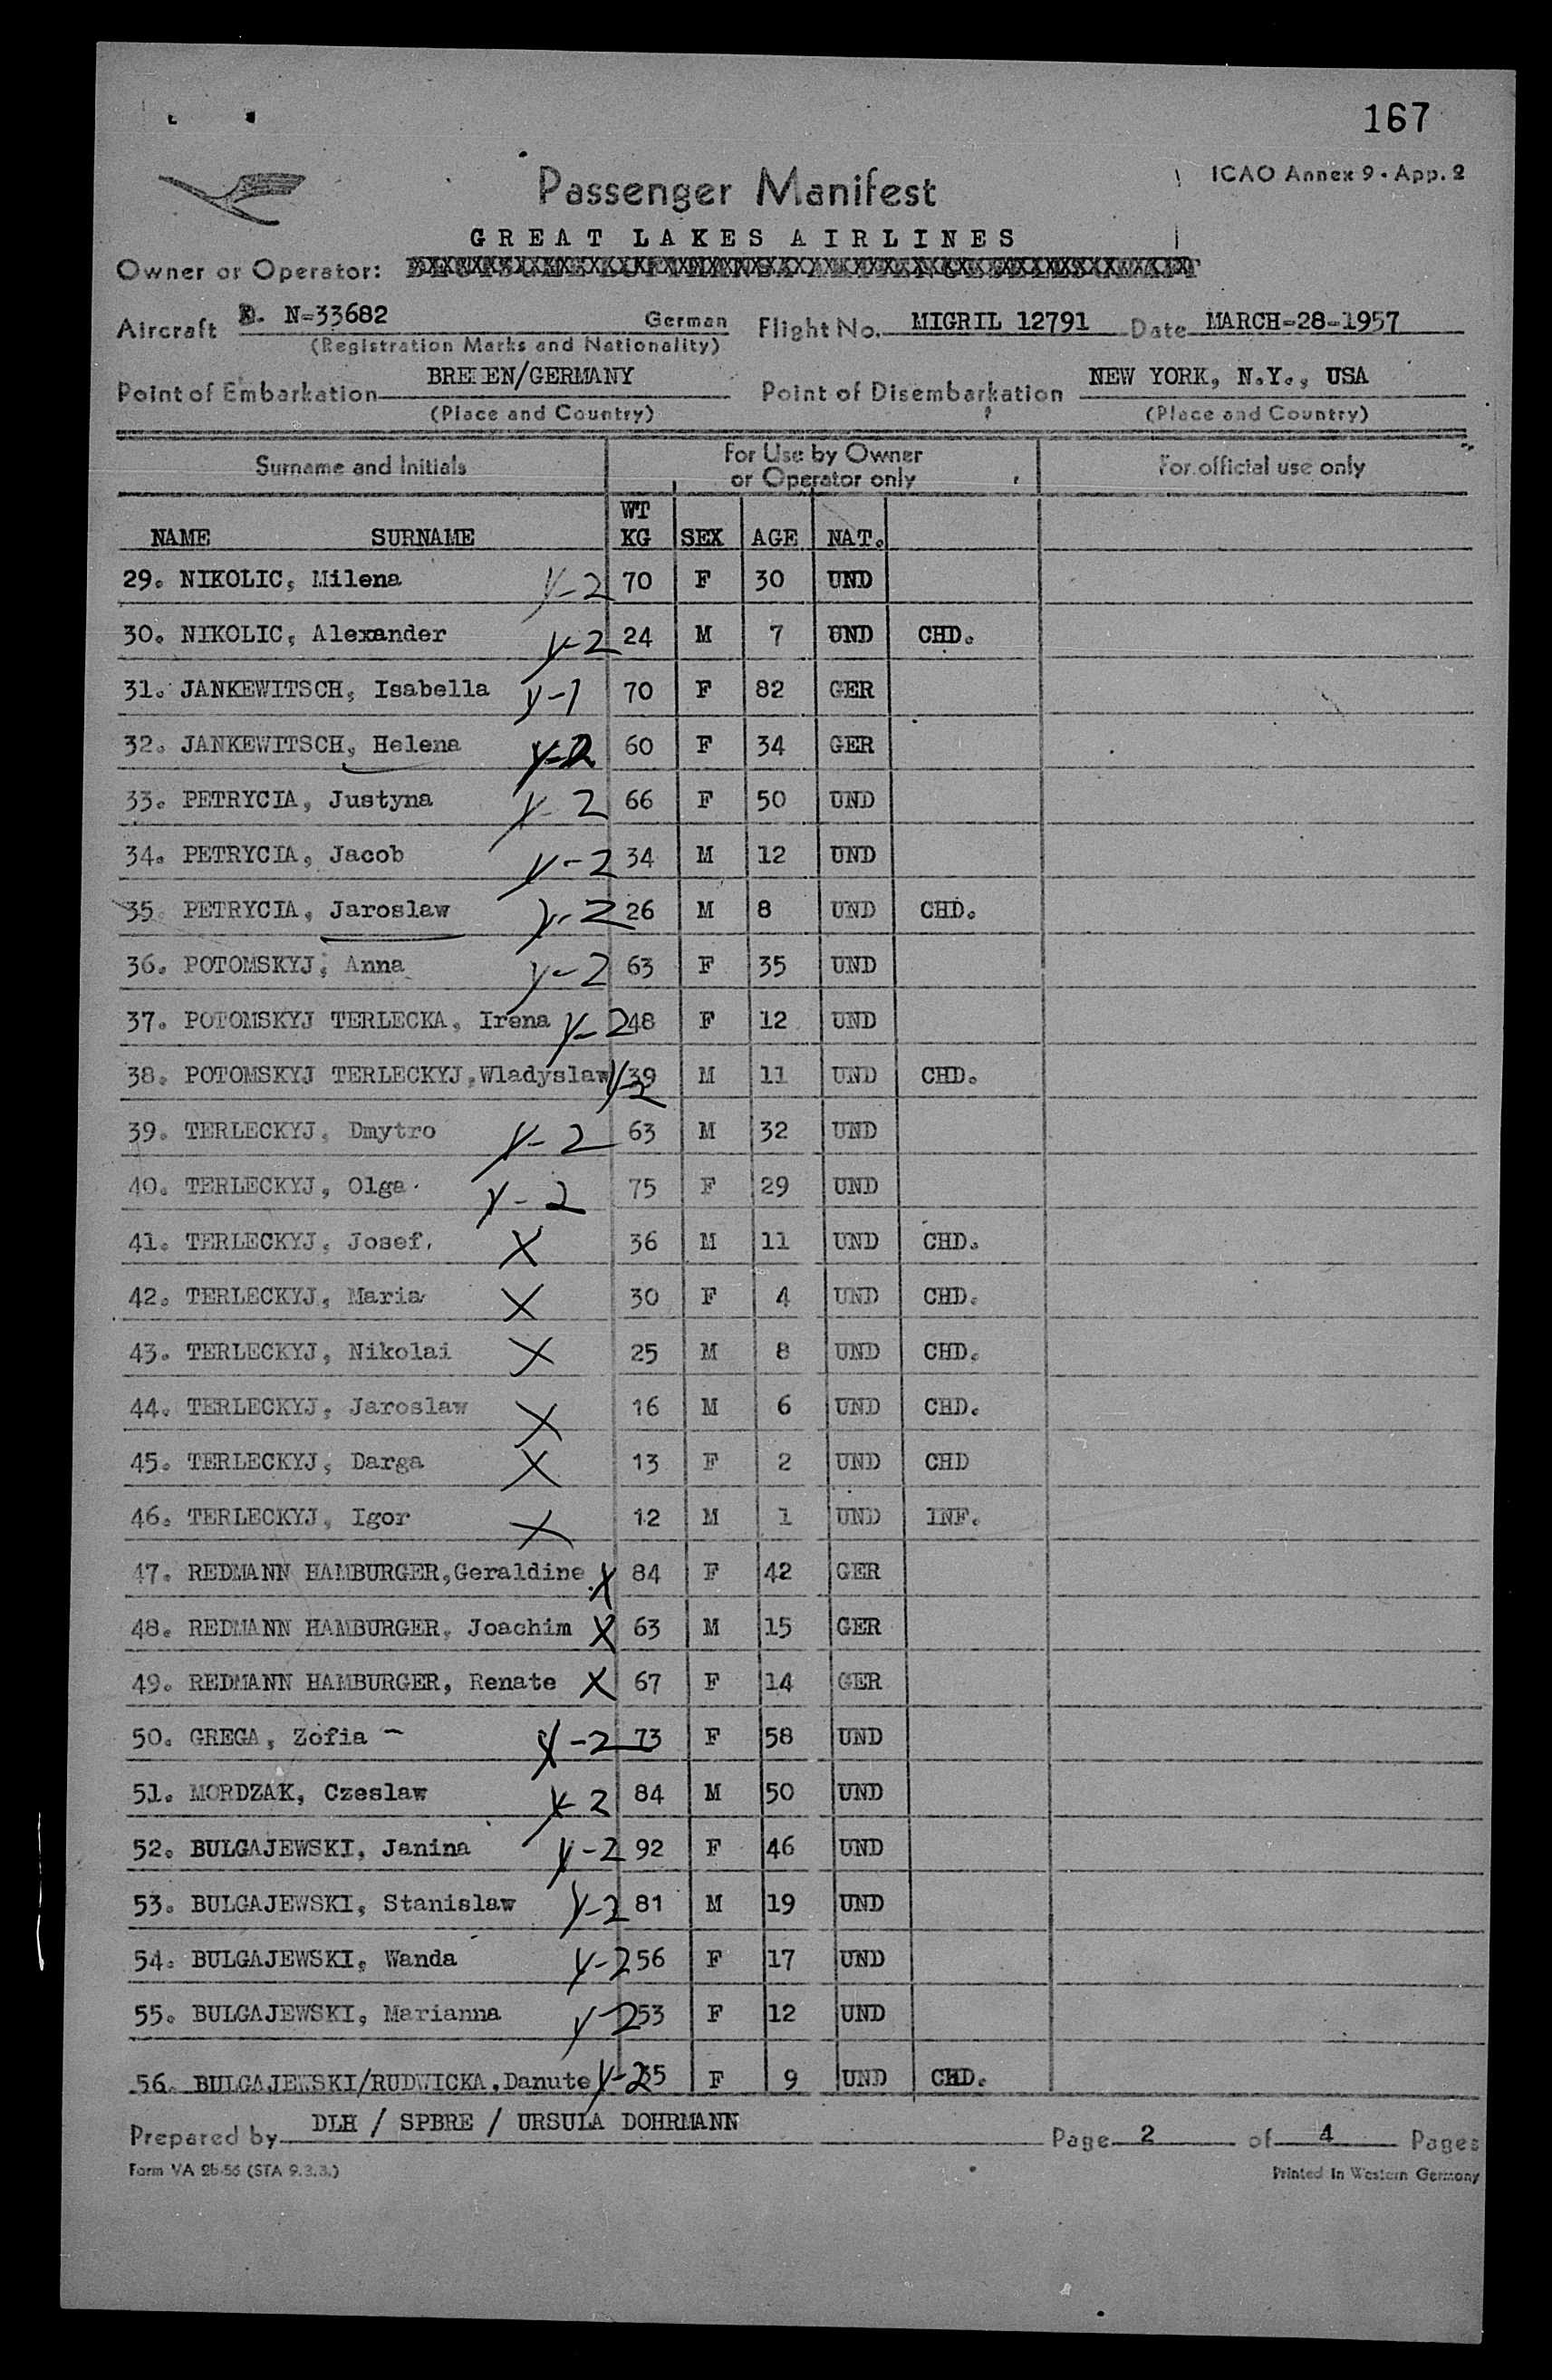 167
ICAO Annex 9 • App. 2
Passenger Manifest
GREAT LAKES AIRLINES
Owner or Operator:
Aircraft D. N-33682 German Flight No. MIGRIL 12791 Date MARCH-28-1957
(Registration Marks and Nationality)
Point of Embarkation BREMEN/GERMANY Point of Disembarkation NEW YORK, N.Y., USA
(Place and Country) (Place and Country)
Surname and Initials For Use by Owner or Operator only For official use only
NAME SURNAME WT KG SEX AGE NAT.
29. NIKOLIC, Milena Y-2 70 F 30 UND
30. NIKOLIC, Alexander Y-2 24 M 7 UND CHD.
31. JANKEWITSCH, Isabella Y-1 70 F 82 GER
32. JANKEWITSCH, Helena Y-2 60 F 34 GER
33. PETRYCIA, Justyna Y-2 66 F 50 UND
34. PETRYCIA, Jacob Y-2 34 M 12 UND
35. PETRYCIA, Jaroslaw Y-2 26 M 8 UND CHD.
36. POTOMSKYJ, Anna Y-2 63 F 35 UND
37. POTOMSKYJ TERLECKA, Irena Y-2 48 F 12 UND
38. POTOMSKYJ TERLECKYJ, Wladyslaw Y-2 39 M 11 UND CHD.
39. TERLECKYJ, Dmytro Y-2 63 M 32 UND
40. TERLECKYJ, Olga Y-2 75 F 29 UND
41. TERLECKYJ, Josef. X 36 M 11 UND CHD.
42. TERLECKYJ, Maria X 30 F 4 UND CHD.
43. TERLECKYJ, Nikolai X 25 M 8 UND CHD.
44. TERLECKYJ, Jaroslaw X 16 M 6 UND CHD.
45. TERLECKYJ, Darga X 13 F 2 UND CHD
46. TERLECKYJ, Igor X 12 M 1 UND INF.
47. REDMANN HAMBURGER, Geraldine X 84 F 42 GER
48. REDMANN HAMBURGER, Joachim X 63 M 15 GER
49. REDMANN HAMBURGER, Renate X 67 F 14 GER
50. GREGA, Zofia Y-2 73 F 58 UND
51. MORDZAK, Czeslaw Y-2 84 M 50 UND
52. BULGAJEWSKI, Janina Y-2 92 F 46 UND
53. BULGAJEWSKI, Stanislaw Y-2 81 M 19 UND
54. BULGAJEWSKI, Wanda Y-2 56 F 17 UND
55. BULGAJEWSKI, Marianna Y-2 53 F 12 UND
56. BULGAJEWSKI/RUDWICKA, Danute Y-2 35 F 9 UND CHD.
Prepared by DLH / SPBRE / URSULA DOHRMANN Page 2 of 4 Pages
Form VA 2b-56 (STA 9.3.3.) Printed in Western Germany